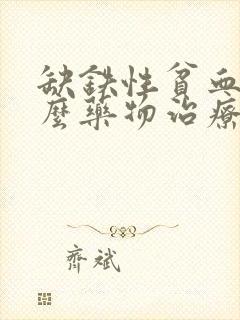 缺鉄性貧血
麼藥物治療
齊斌